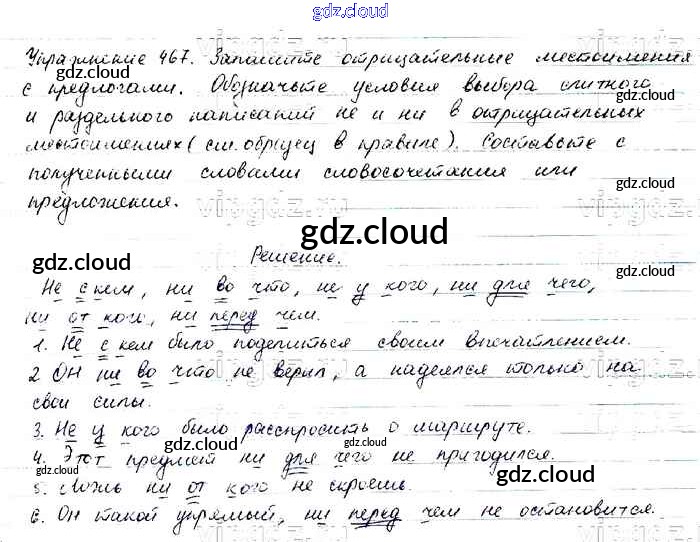 gdz.cloud
Упражнение 467. Запишите отрицательные местоимения
с предлогами. Обозначьте условия выбора слитного
и раздельного написаний не и ни в отрицательных
местоимениях (см. образец в правиле). Составьте с
полученными словами словосочетания или
предложения.
gdz.cloud
Решение.
Не с кем, ни во что, не у кого, ни для чего,
ни от кого, ни перед чем.
1. Не с кем было поделиться своим впечатлением.
2 Он ни во что не верил, а надеялся только на
свои силы.
3. Не у кого было расспросить о маршруте.
4. Этот предмет ни для чего не пригодился.
5. Ложь ни от кого не скроешь.
6. Он такой упрямый, ни перед чем не остановится.